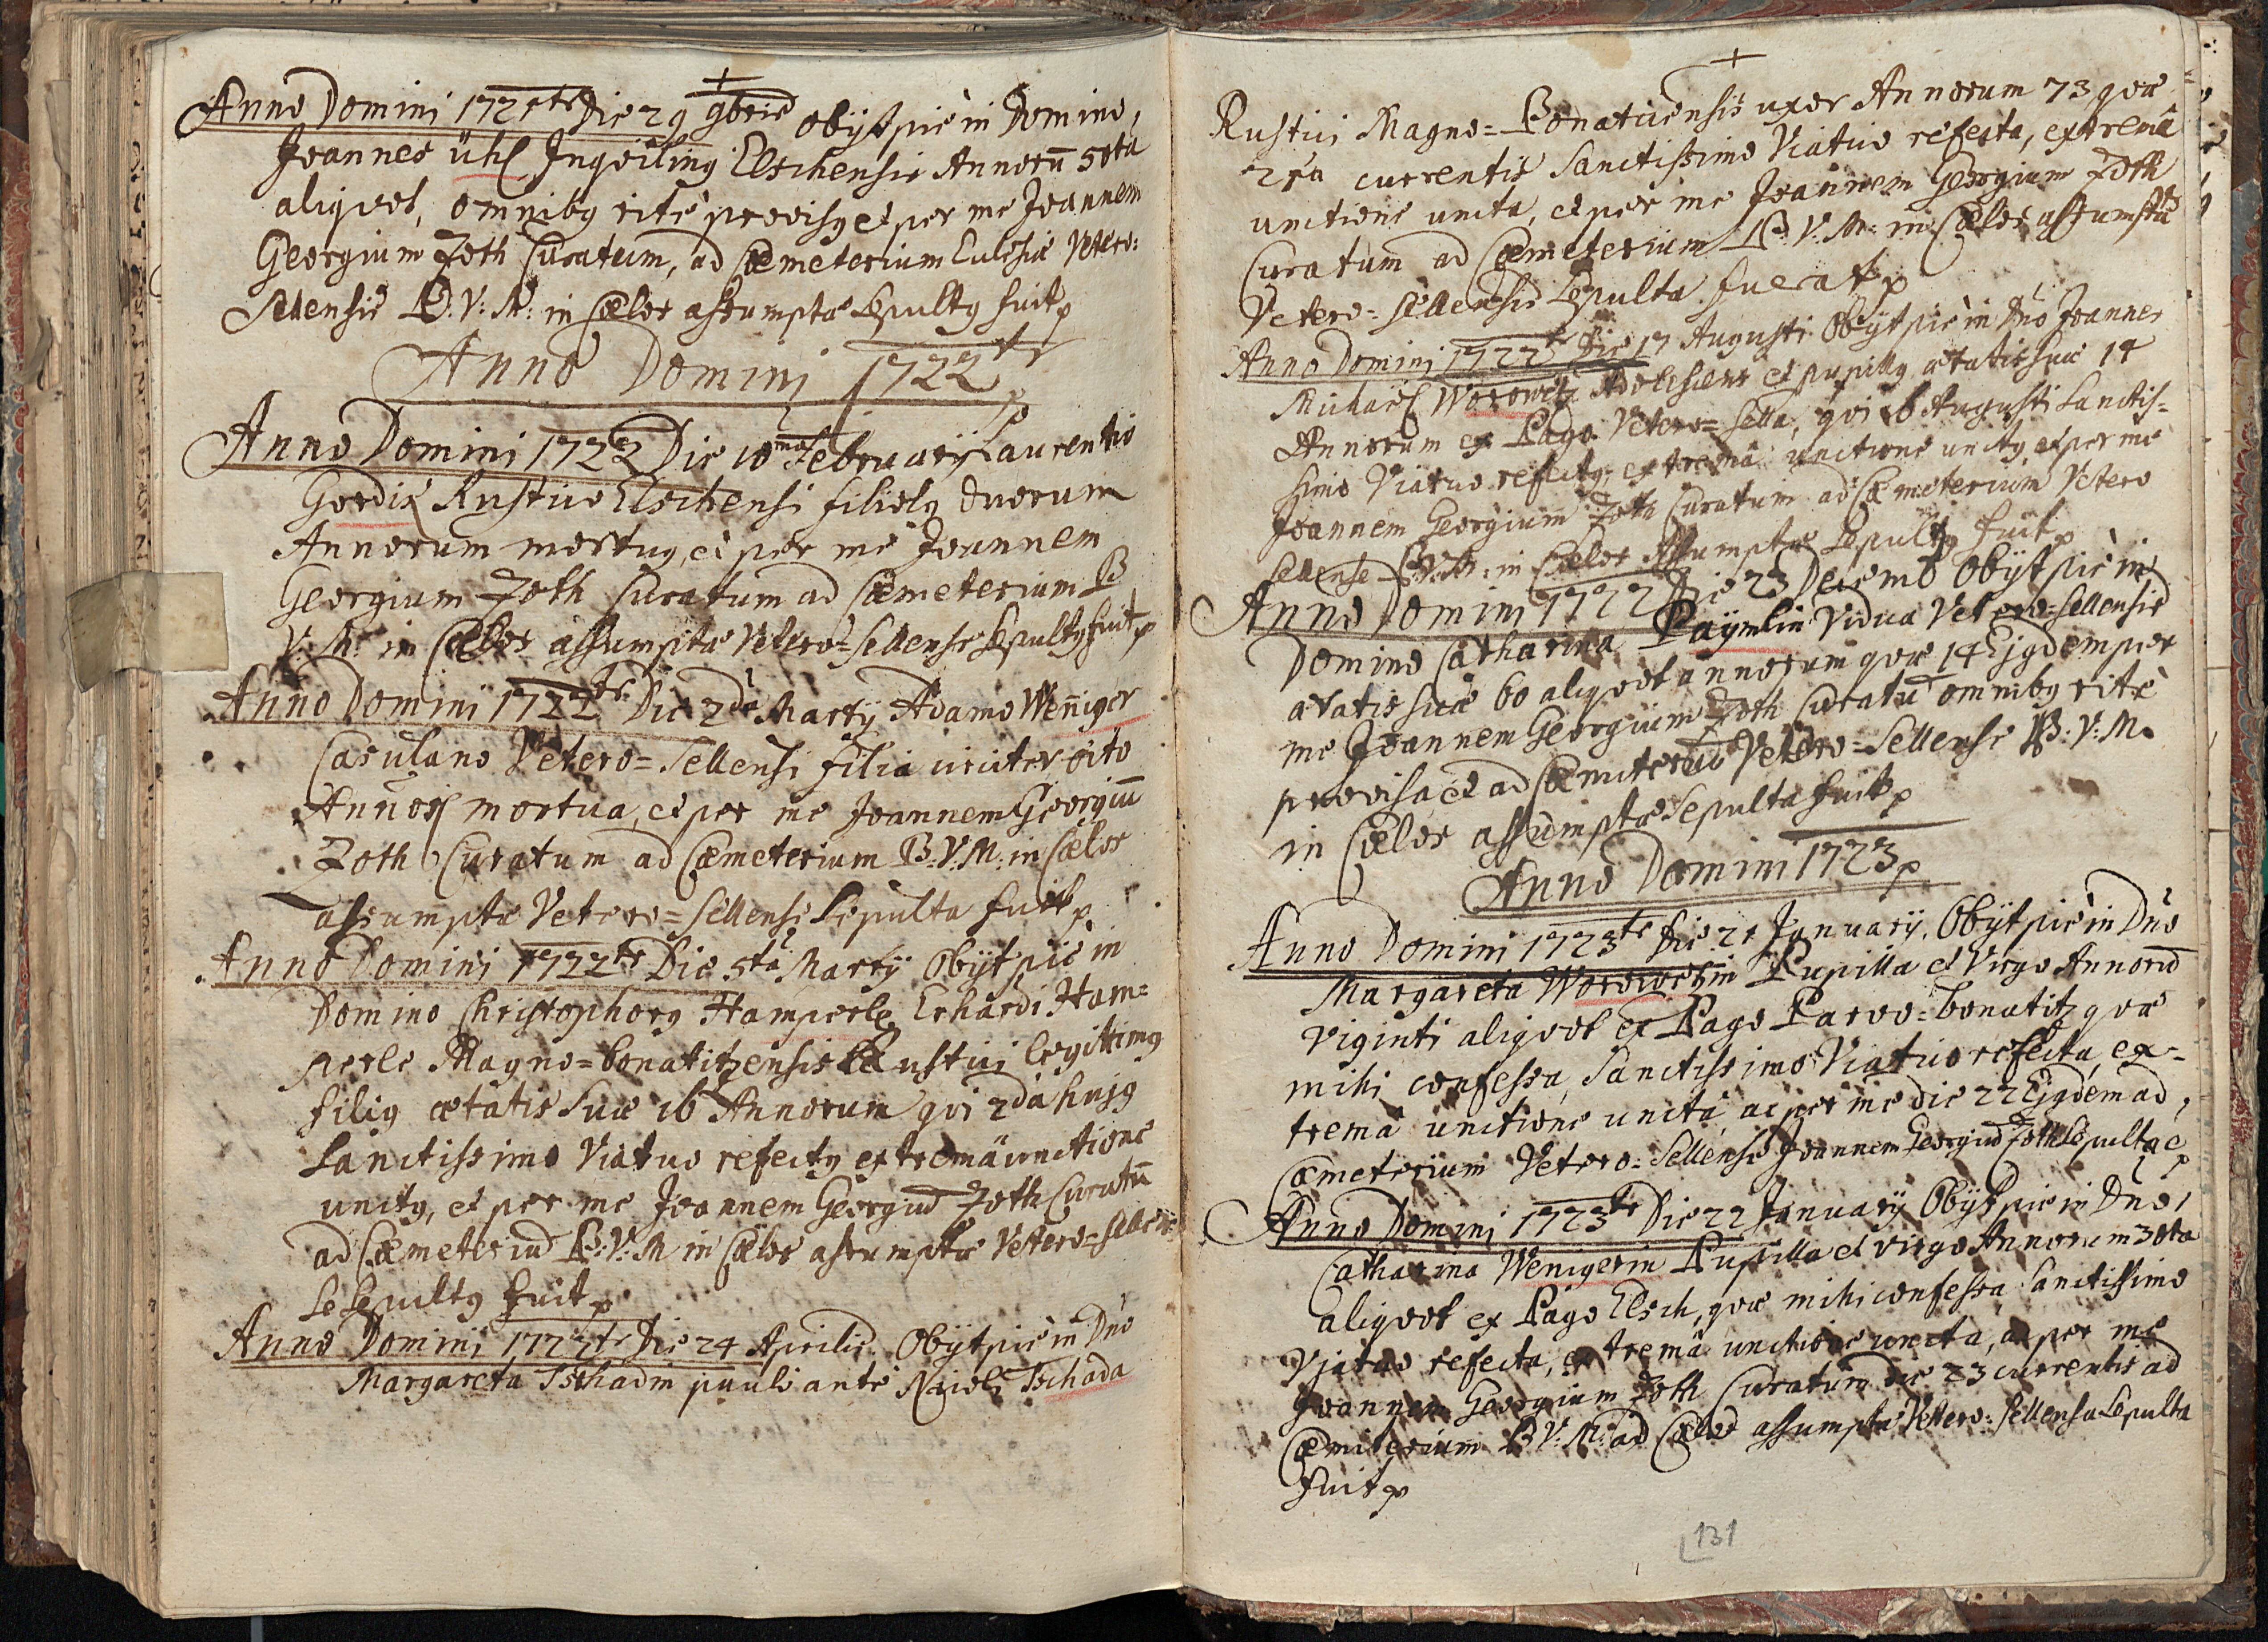 Anno Domini 1721te Die 29 9bris obÿt piè in Domino,
Joannes Ühl Inqviling Elschensis Annorū 50ta
aliqvot, omnibg ritè provisg et per me Joannem
Georgium Zoth Curatum, ad Cœmeterium Eclesiæ Vetero=
Sellensis B: V: M: in Cælos assumptæ Sepultg fuit
Anno Domini 1722te
Anno Domini 1722 Die 10ma Februarÿ Laurentio
Gordix Rustico Elschensi filiolg duorum
Annorum mortug, et per me Joannem
Georgium Zoth Curatum ad Cœmeterium B
V: M: in Cælos assumptæ Vetero=Sellense Sepultg fuit
Anno Domini 1722te Die 2da Martÿ Adamo Weñiger
Casulano Vetero=Sellensi filia circiter octo
Annorū mortua, et per me Joannem Georgiū
Zoth Curatum ad Cœmeterium B: V: M: in Cælos
assumptæ Vetero=Sellense Sepulta fuit
Anno Domini 1722te Die 5ta Martÿ Obÿt piè in
Domino Christophorg Hamperle Erhardi Ham=
perle Magno=bonatitzensis Rustici legittimg
filig ætatis suæ 16 Annorum qvi 2da hujg
Sanctissimo Viatico refectg extremâ unctione
unctg, et per me Joannem Georgiū Zoth Curatū
ad Cœmeteriū B: V: M in Cælos assumptæ Vetero=Sellen
se Sepultg fuit
Anno Domini 1722te Die 24 Aprilis Obÿt piè in Dño
Margareta Tschadin pauli ante Nicoli Tschada
Rustici Magno=Bonaticensis uxor Annorum 73 qvæ
21ta currentis Sanctissimo Viatico refecta, extremâ
unctione uncta, et per me Joannem Georgium Zoth
Curatum ad Cœmeterium B: V: M: in Cælos assumptæ
Vetero=Sellensis Sepulta fuerat
Anno Domini 1722te Die 17 Augusti Obÿt piè in Dño Joannes
Michaël Worowetz Adolescens et pupillg ætatis suæ 14
Annorum ex Pago Vetero=Sella, qvi 16 Augusti Sanctis=
simo Viatico refectg, extremâ unctione unctg, et per me
Joannem Georgium Zoth Curatum ad Cœmeterium Vetero
Sellense B: V: M: in Cælos Assumptæ Sepultg fuit
Anno Domini 1722 Die 23 Decemb Obÿt piè in
Domino Catharina Paÿmlin Vidua Vetero=Sellensis
ætatis suæ 60 aliqvot annorum qvæ 14 Ejgdem per
me Joannem Georgium Zoth Curatū omnibg ritè
provisa et ad Cœmiteriū Vetero=Sellense B: V: M.
in Cælos assumptæ Sepulta fuit
Anno Domini 1723
Anno Domini 1723te Die 21 Januarÿ, Obÿt piè in Dño
Margareta Worowetzin Pupilla et Virgo Annorū
Viginti aliqvot ex Pago Parvo=bonatitz qvæ
mihi confessa, Sanctissimo Viatico refecta, ex=
tremâ unctione uncta, ac per me die 22 Ejgdem ad,
Cœmeterium Vetero=Sellense Joannem Georgiū Zoth Sepulta e
Anno Domini 1723te Die 22 Januarÿ Obÿt pie in Dño,
Catharina Wenigerin Pupilla et virgo Annorum 30ta
aliqvot ex Pago Elsch, qvæ mihi confessa Sanctissimo
Vjatico refecta, extremâ unctione uncta, ac per me
Joannem Georgium Zoth Curatum die 23 currentis ad
Cœmiterium B V: M: ad Cælos assumptæ Vetero=Sellense Sepulta
fuit
131